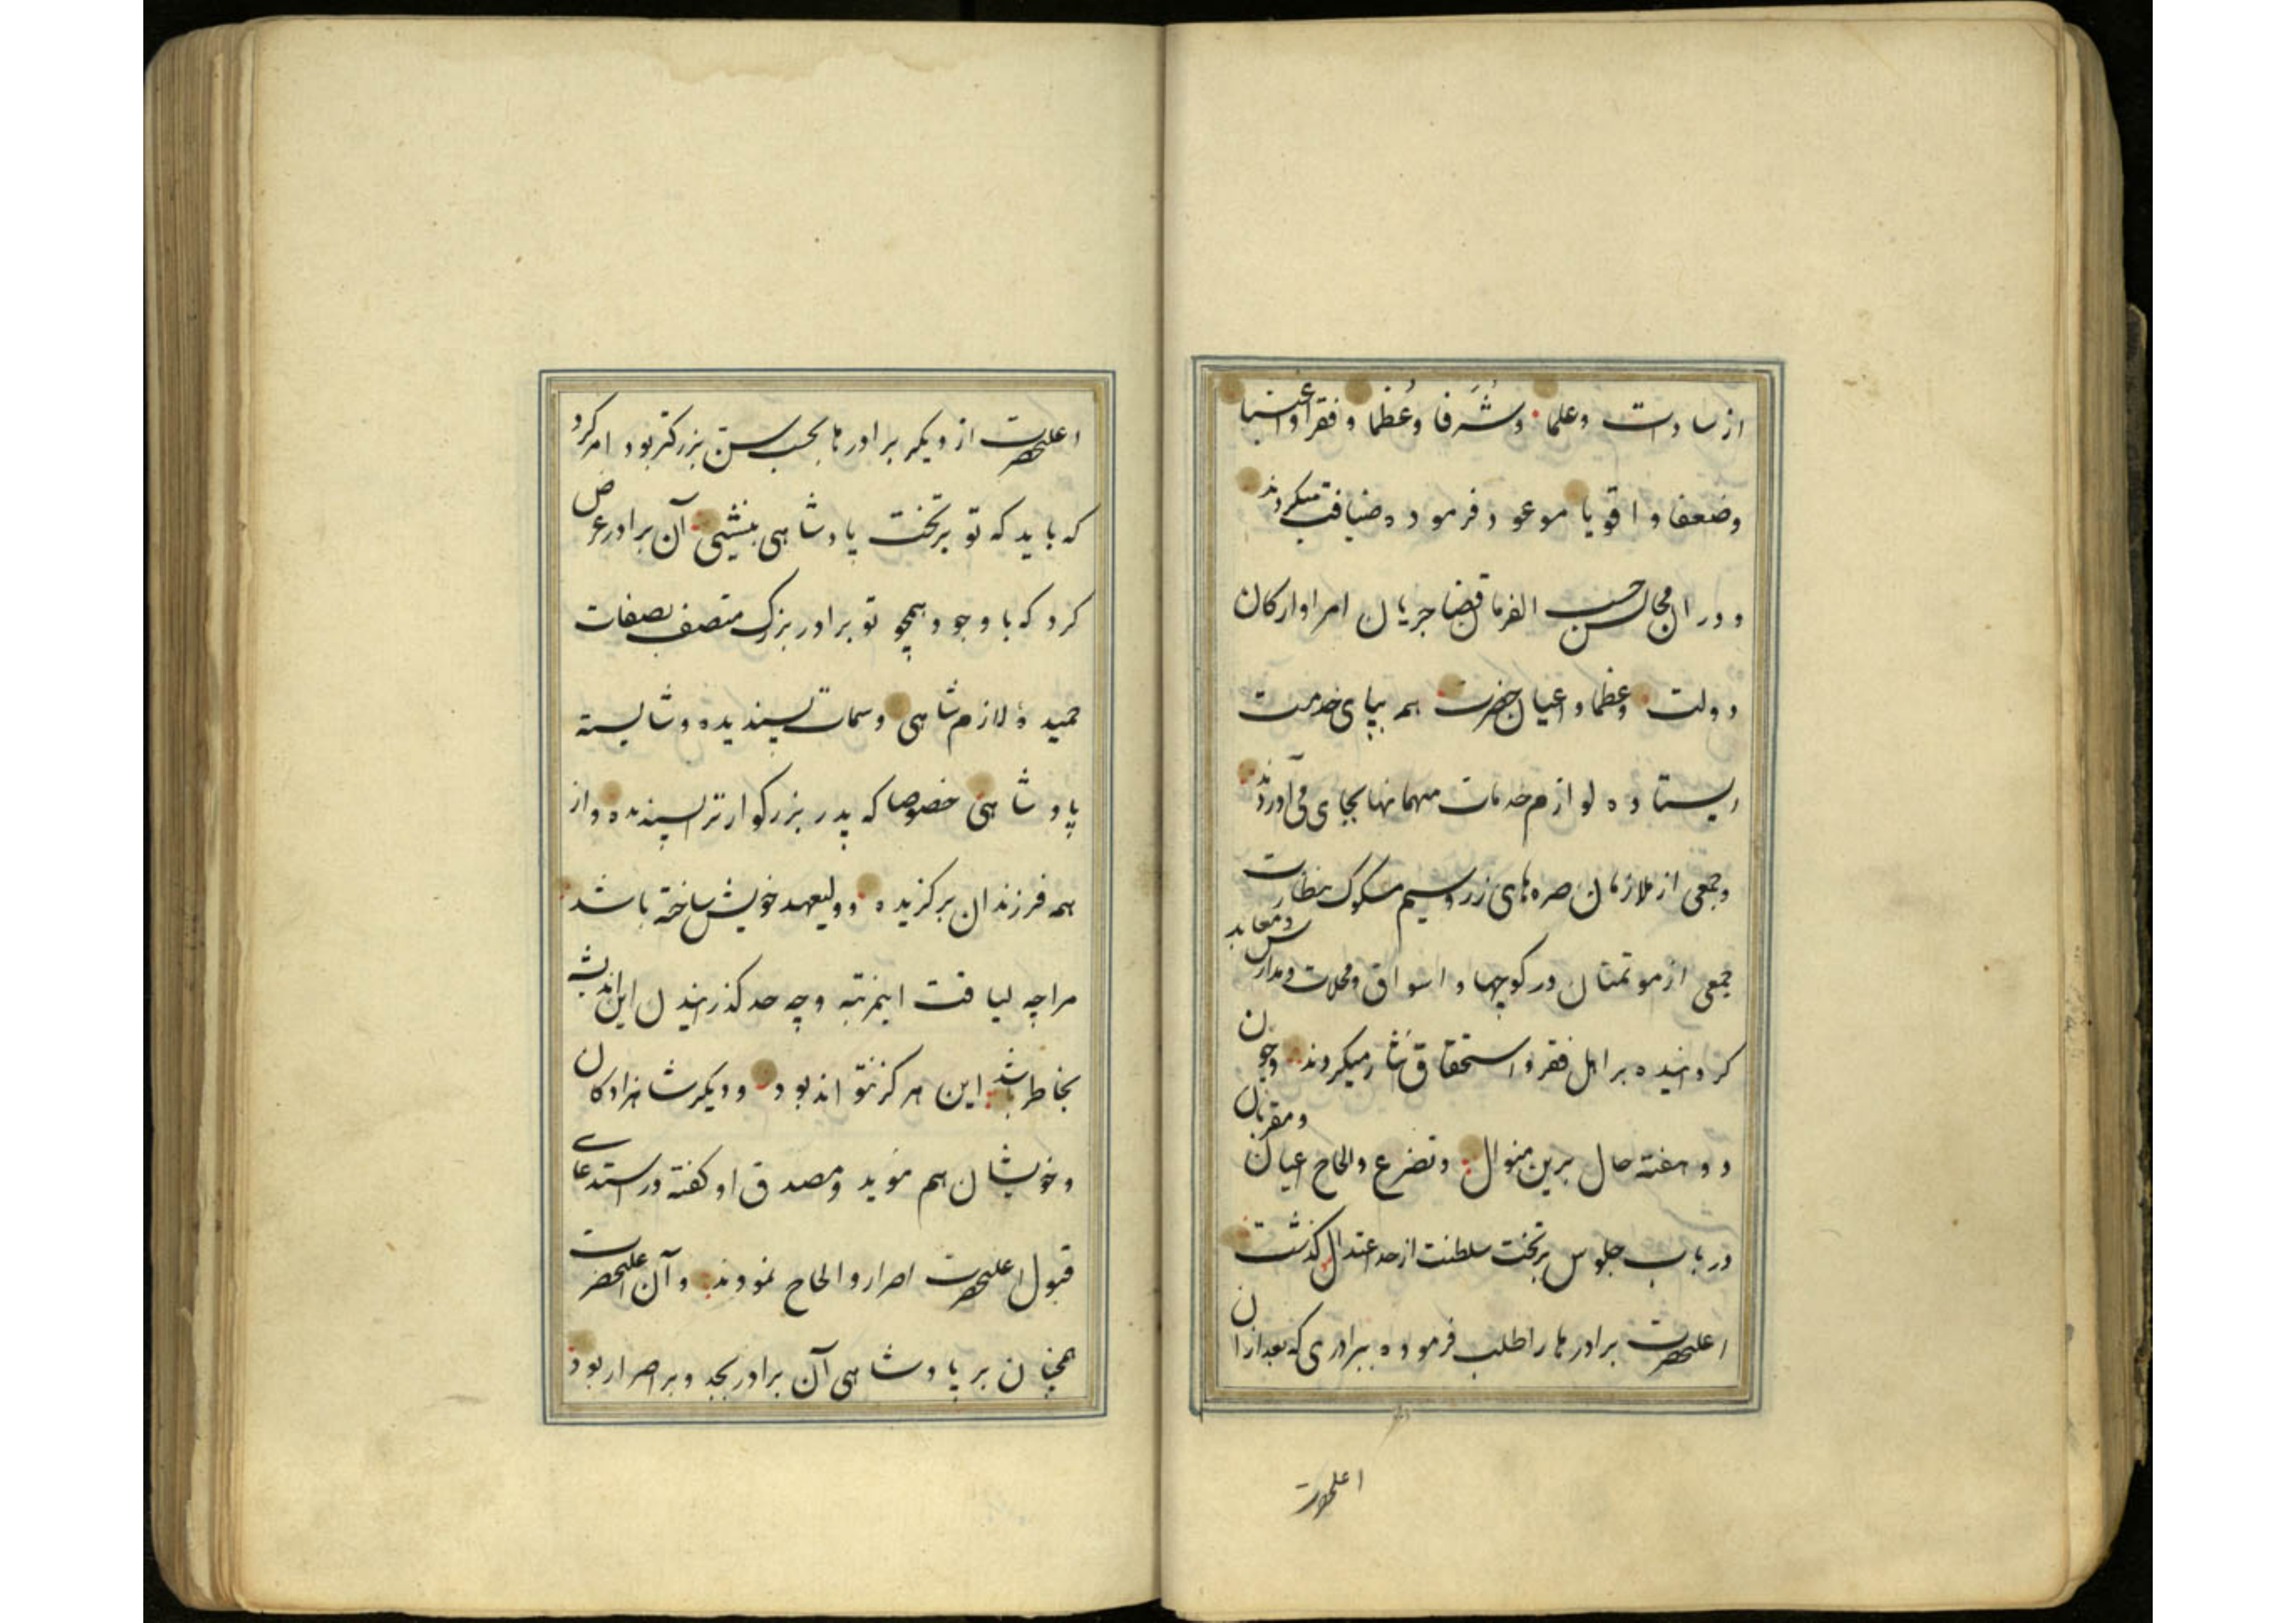 از سادات وعلما وشُرفا وعُظما و فقرا واغنیا
وضعفا و اقویا موعود فرموده ضیافت میکردند
و در ان مجالس حسب الفرمان قضا جریان امرا وارکان
دولت وعظما و اعیان حضرت همه بپای خدمت
ایستاده لوازم خدمات مهمانیها بجای می‌آوردند
وجمعی از ملازمان صره‌های زر وسیم مسکوک بنظارت
جمعی از موتمنان در کوچها و اسواق ومحلات ومدارس ومعابد
کردانیده بر اهل فقر و استحقاق نثار میکردند وچون
دو هفته حال برین منوال وتضرع والحاح اعیان ومقربان
در باب جلوس بر تخت سلطنت از حد اعتدال کذشت
اعلیحضرت برادرها را طلب فرموده ببرادری که بعد از ان
اعلیحضرت
اعلیحضرت از دیکر برادرها بحسب سن بزرکتر بود امر کرد
که باید که تو بر تخت پادشاهی بنشینی آن برادر عرض
کرد که با وجود همچو تو برادر بزرک متصف بصفات
حمیدهٔ لازم شاهی وسمات پسندیده وشایسته
پادشاهی خصوصا که پدر بزرکوار ترا پسندیده واز
همه فرزندان برکزیده وولیعهد خویش ساخته باشد
مرا چه لیاقت اینمرتبه وچه حد کذرانیدن این اندیشه
بخاطر باشد این هرکز نتواند بود ودیکر شاهزادکان
وخویشان هم موید ومصدق او کفته در استدعای
قبول اعلیحضرت اصرار والحاح نمودند وآن اعلیحضرت
همچنان بر پادشاهی آن برادر بجد وبر اصرار بود